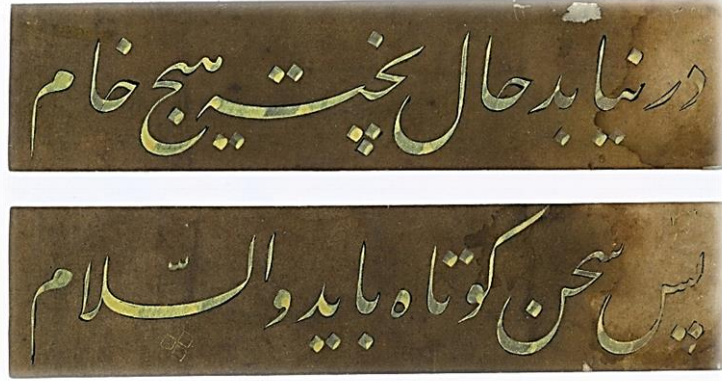 در نیابد حال پخته هیچ خام
پس سخن کوتاه باید والسّلام